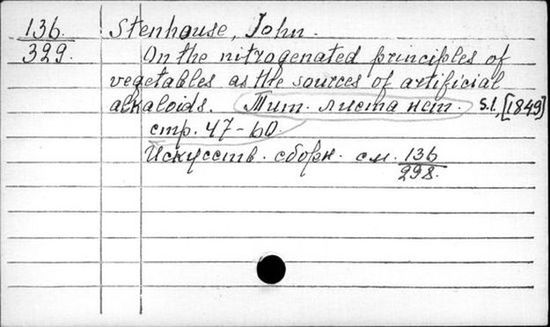 136. Stenhouse, John.
329. On the nitrogenated principles of
vegetables as the sources of artificial
alkaloids. Тит. листа нет. S.l., [1849]
стр. 47-60.
Искусств. сборн. см. 136
298.